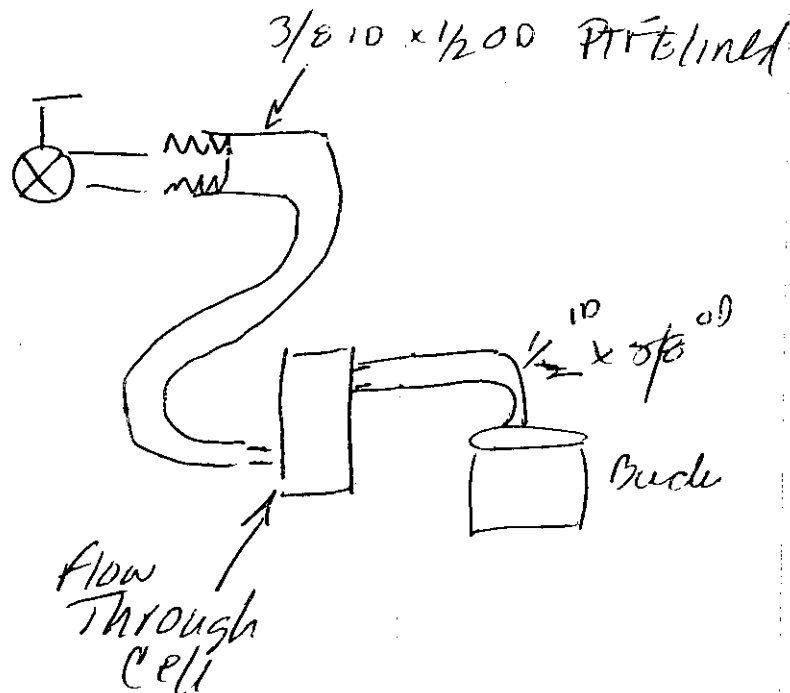 3/8 ID x 1/2 OD PTFE lined
1/2 ID x 5/8 OD
Flow
Through
Cell